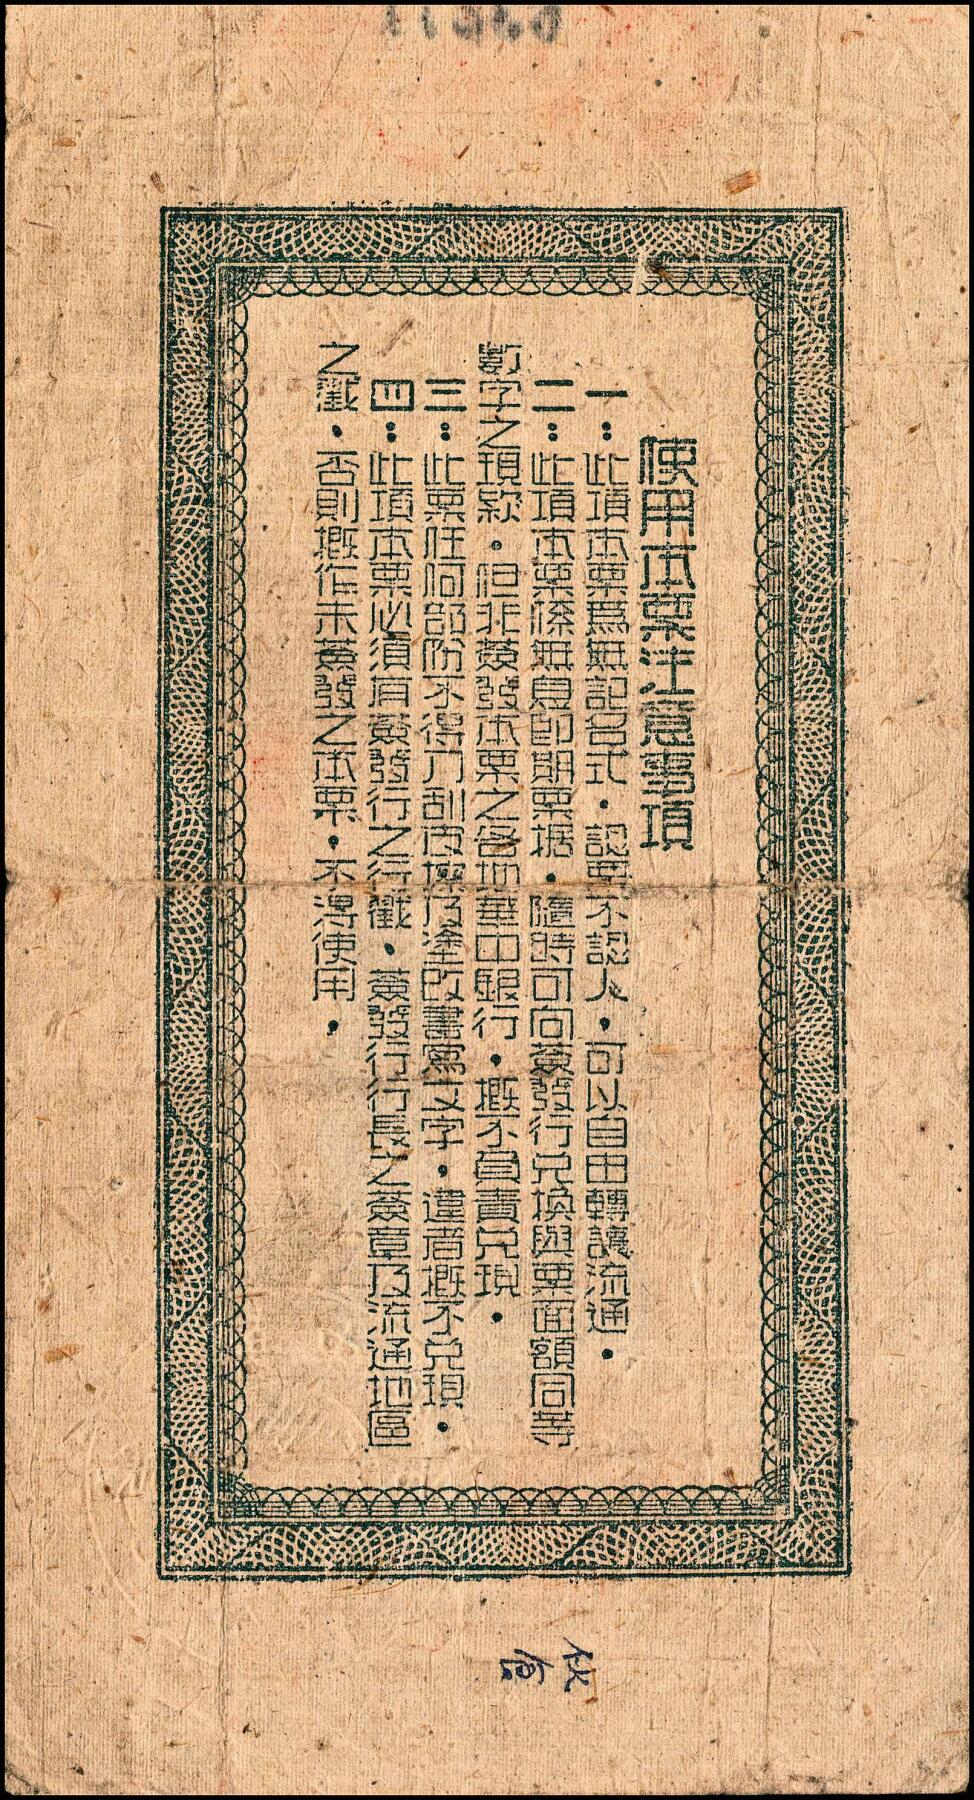 使用本票注意事項
一：此項本票爲無記名式．認票不認人，可以自由轉讓流通．
二：此項本票係無息即期票据．隨時可向簽發行兌換與票面額同等
數字之現款．但非簽發本票之各地華中銀行，概不負責兌現．
三：此票任何部份不得刀刮皮擦及塗改書寫文字，違者概不兌現．
四：此項本票必須有簽發行之行戳、簽發行行長之簽章及流通地區
之戳．否則概作未簽發之本票，不得使用．